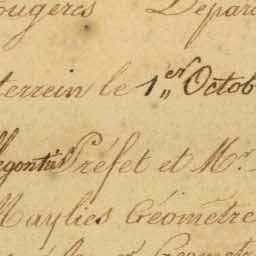 ougères Depar
terrein le 1er Octob
Préfet et Mr.
Maylies Géomètre
Géomètr